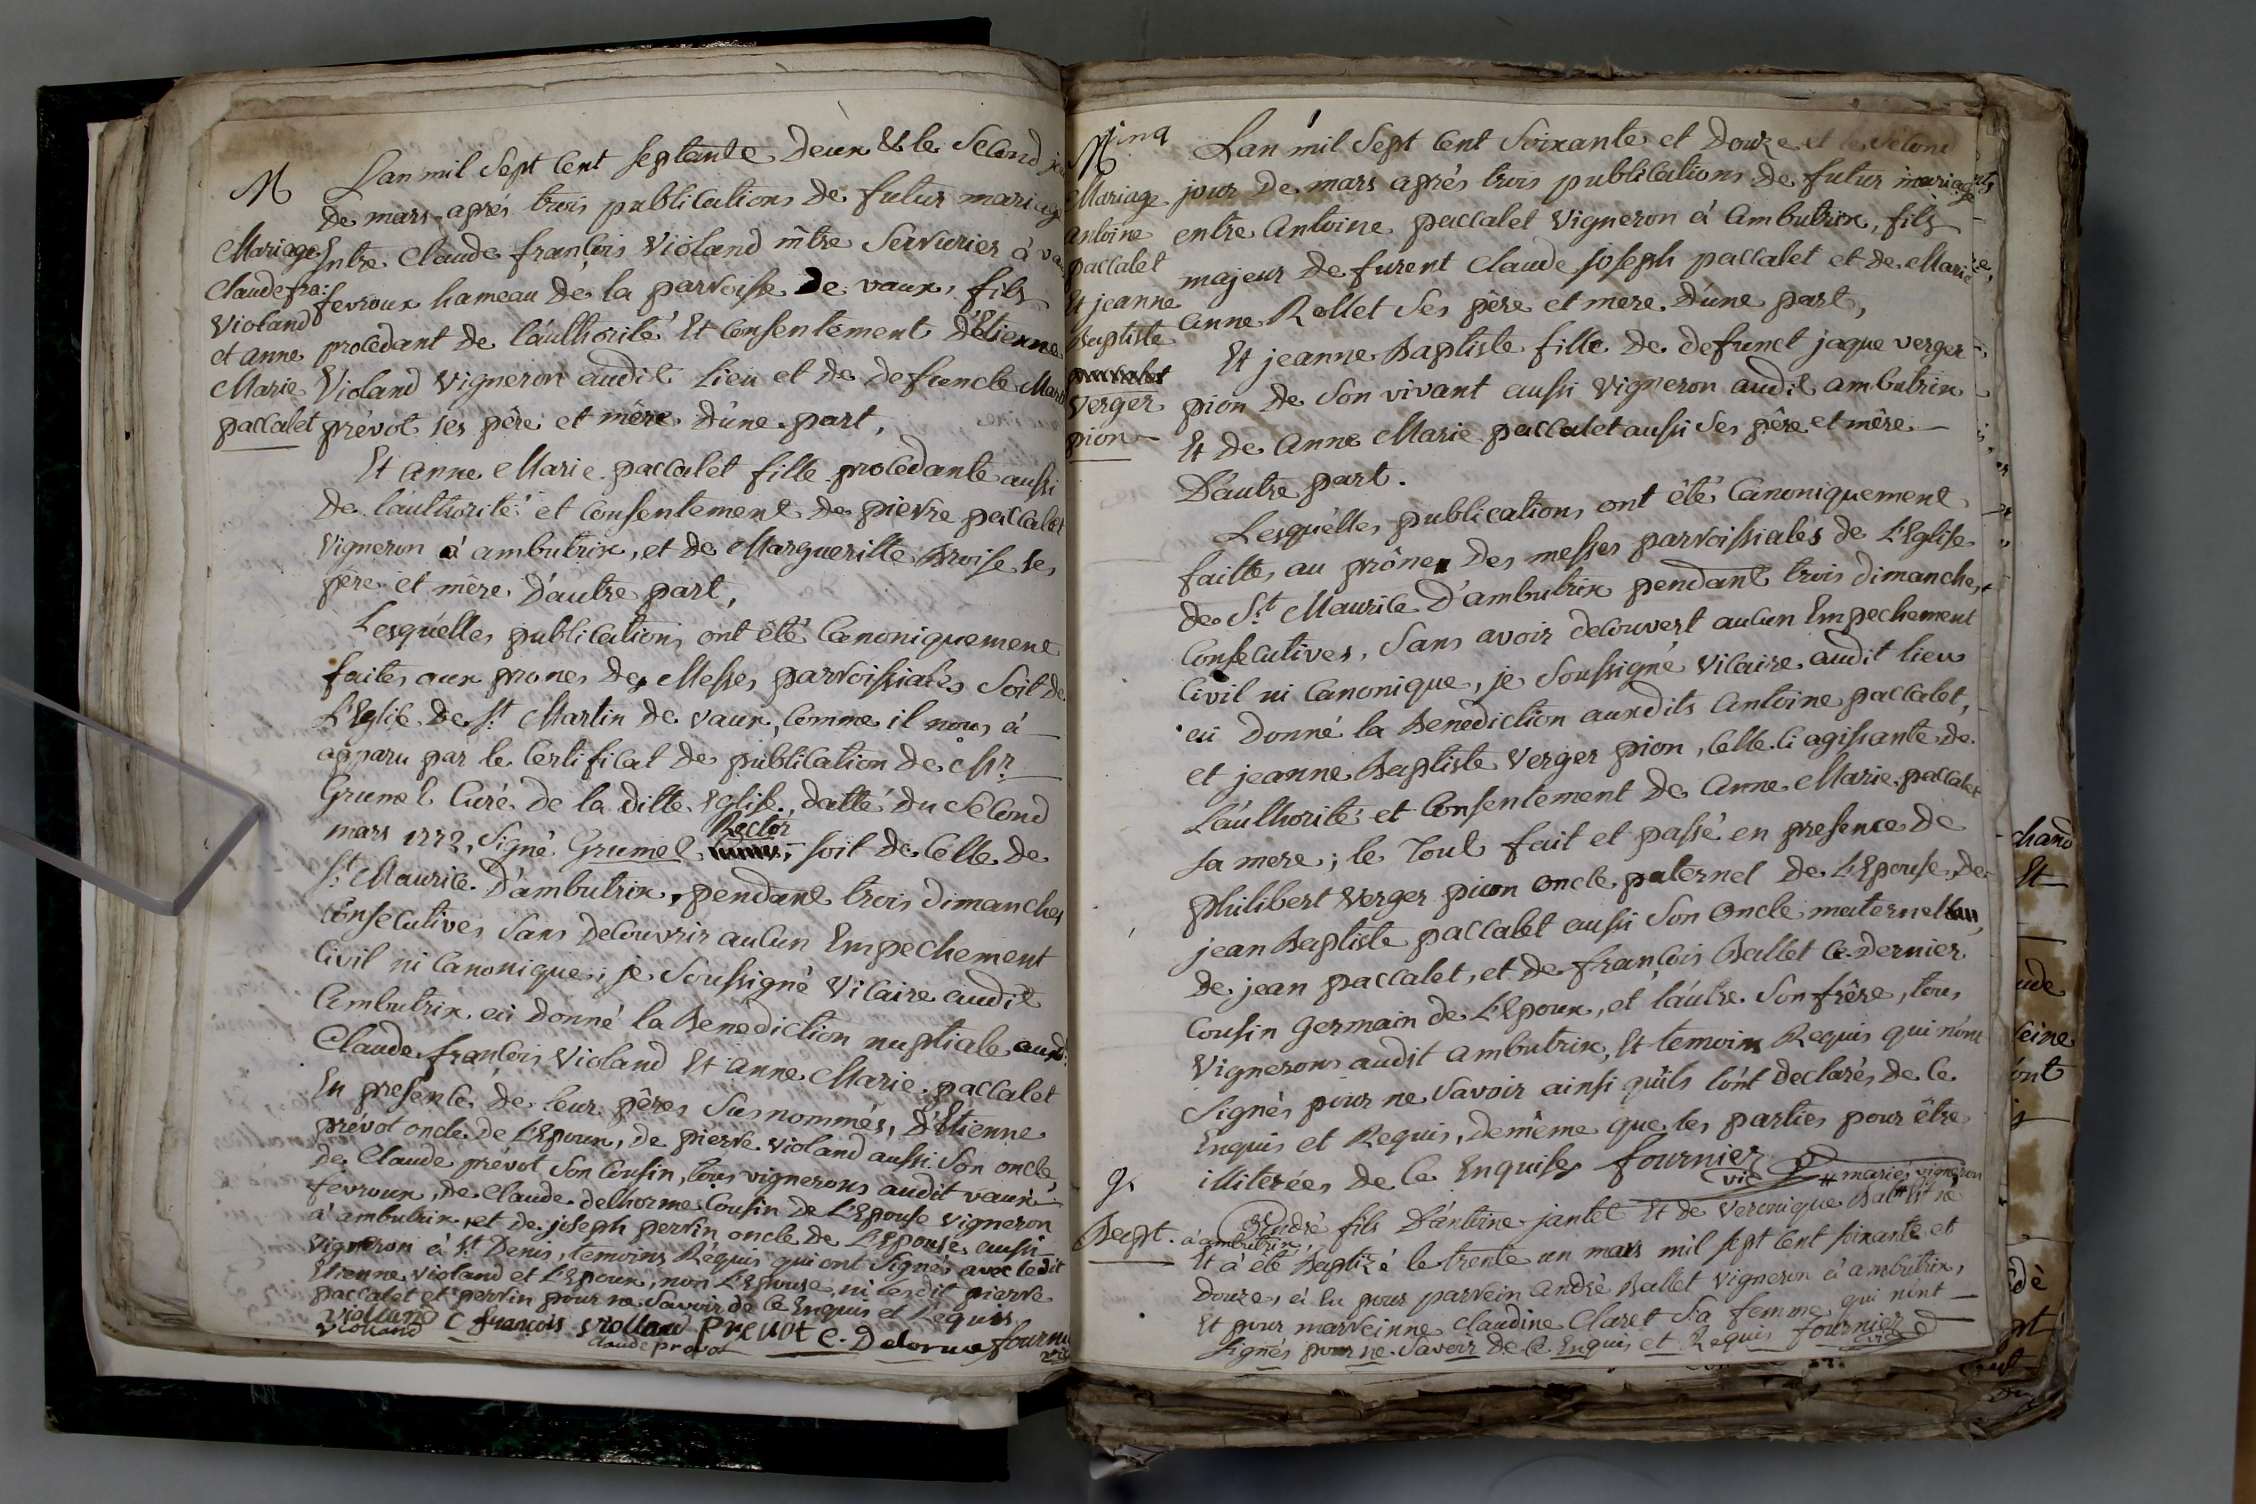 M
Mariage
Claude fra:
Violand
et anne
Marie
paccalet
Lan mil Sept Cent septante Deux Et le Second
de mars aprés trois publications de futur mariage
Entre Claude françois Violand mtre Serrurier à vau
fevroux hameau de la parroisse De vaux, fils
procédant de l'authorité Et Consentement d'Etienne
Violand Vigneron audit Lieu et de deffuncte Marie
prévot ses père et mère d'une part,
Et anne Marie paccalet fille procedante aussi
de l'authorité et Consentement de pierre paccalet
Vigneron à ambutrix, et de Margueritte Broise ses
père et mère d'autre part,
Lesquelles publications ont été Canoniquement
faites aux prones des Messes parroissiales Soit de
L'Eglise de St Martin de vaux, Comme il nous à
apparu par le Certificat de publication de Mr
Grumel Curé de la ditte Eglise, datté du Second
mars 1772, Signé Grumel Rector, soit de Celle de
St Maurice D'ambutrix, pendant trois dimanches
Consecutives Sans decouvrir aucun Empechement
Civil ni Canonique, je Soussigné Vicaire audit
Ambutrix ai donné la Benediction nuptiale auxd:
Claude françois Violand Et anne Marie paccalet
En presence de leur pères Susnommés, d'Etienne
prévot oncle de L'Epoux, de pierre violand aussi Son oncle,
de Claude prévot Son Cousin, tous vignerons audit vaux
fevroux, de Claude delhorme Cousin de L'Epouse Vigneron
à ambutrix, et de joseph perrin oncle de L'Epouse aussi
Vigneron à St Denis, temoins Réquis qui ont Signés avec ledit
Etienne Violand et L'Epoux, non L'Epouse ni lesdit pierre
paccalet et perrin pour ne Savoir de Ce Enquis et Requis
Violland C françois violland Prevot C. Delorme fournier
violland Claude prevot vic
M
Mariage
antoine
paccalet
Et jeanne
Baptiste
Verger
pion
Lan mil Sept Cent Soixante et Douze et le Second
jour de mars aprés trois publications de futur mariage
entre Antoine paccalet Vigneron à Ambutrix, fils
majeur de furent Claude joseph paccalet et de Marie
Anne Rollet Ses père et mere d'une part,
Et jeanne Baptiste fille de defunct jaque verger
pion de Son vivant aussi Vigneron audit ambutrix
Et de Anne Marie paccalet aussi Ses père et mère
D'autre part.
Lesquelles publications ont été Canoniquement
faittes au prône des messes parroissiales de L'Eglise
de St Maurice d'ambutrix pendant trois dimanches
Consecutives, Sans avoir decouvert aucun Empechement
Civil ni Canonique, je Soussigné Vicaire audit lieu
ai donné la Benediction auxdits Antoine paccalet,
et jeanne Baptiste Verger pion, Celle Ci agissante de
L'authorité et Consentement de Anne Marie paccalet
Sa mere; le Tout fait et passé en presence de
philibert Verger pion oncle paternel de L'Epouse, de
jean Baptiste paccalet aussi Son Oncle maternel
de jean paccalet, et de françois Ballet Ce dernier
Cousin Germain de L'Epoux, et l'autre Son frère, tous
Vignerons audit ambutrix, Et temoins Requis qui n'ont
Signés pour ne Savoir ainsi qu'ils l'ont declarés de Ce
Enquis et Requis, de même que les parties pour être
illiterées de Ce Enquises fournier vic
9.
Bapt.
# mariés vigneron
à ambutrix,
André fils D'antoine jantet Et de Veronique Ballet # Est né
Et à été Baptizé le trente un mars mil sept Cent soixante et
Douze, à Eu pour parrein André Ballet Vigneron à ambutrix,
Et pour marreinne Claudine Claret Sa femme qui n'ont
Signés pour ne Savoir de Ce Enquis et Requis fournier vic
chand
Et
ude
ont